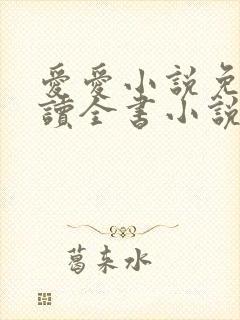 愛愛小說免
讀全書小說
葛東水